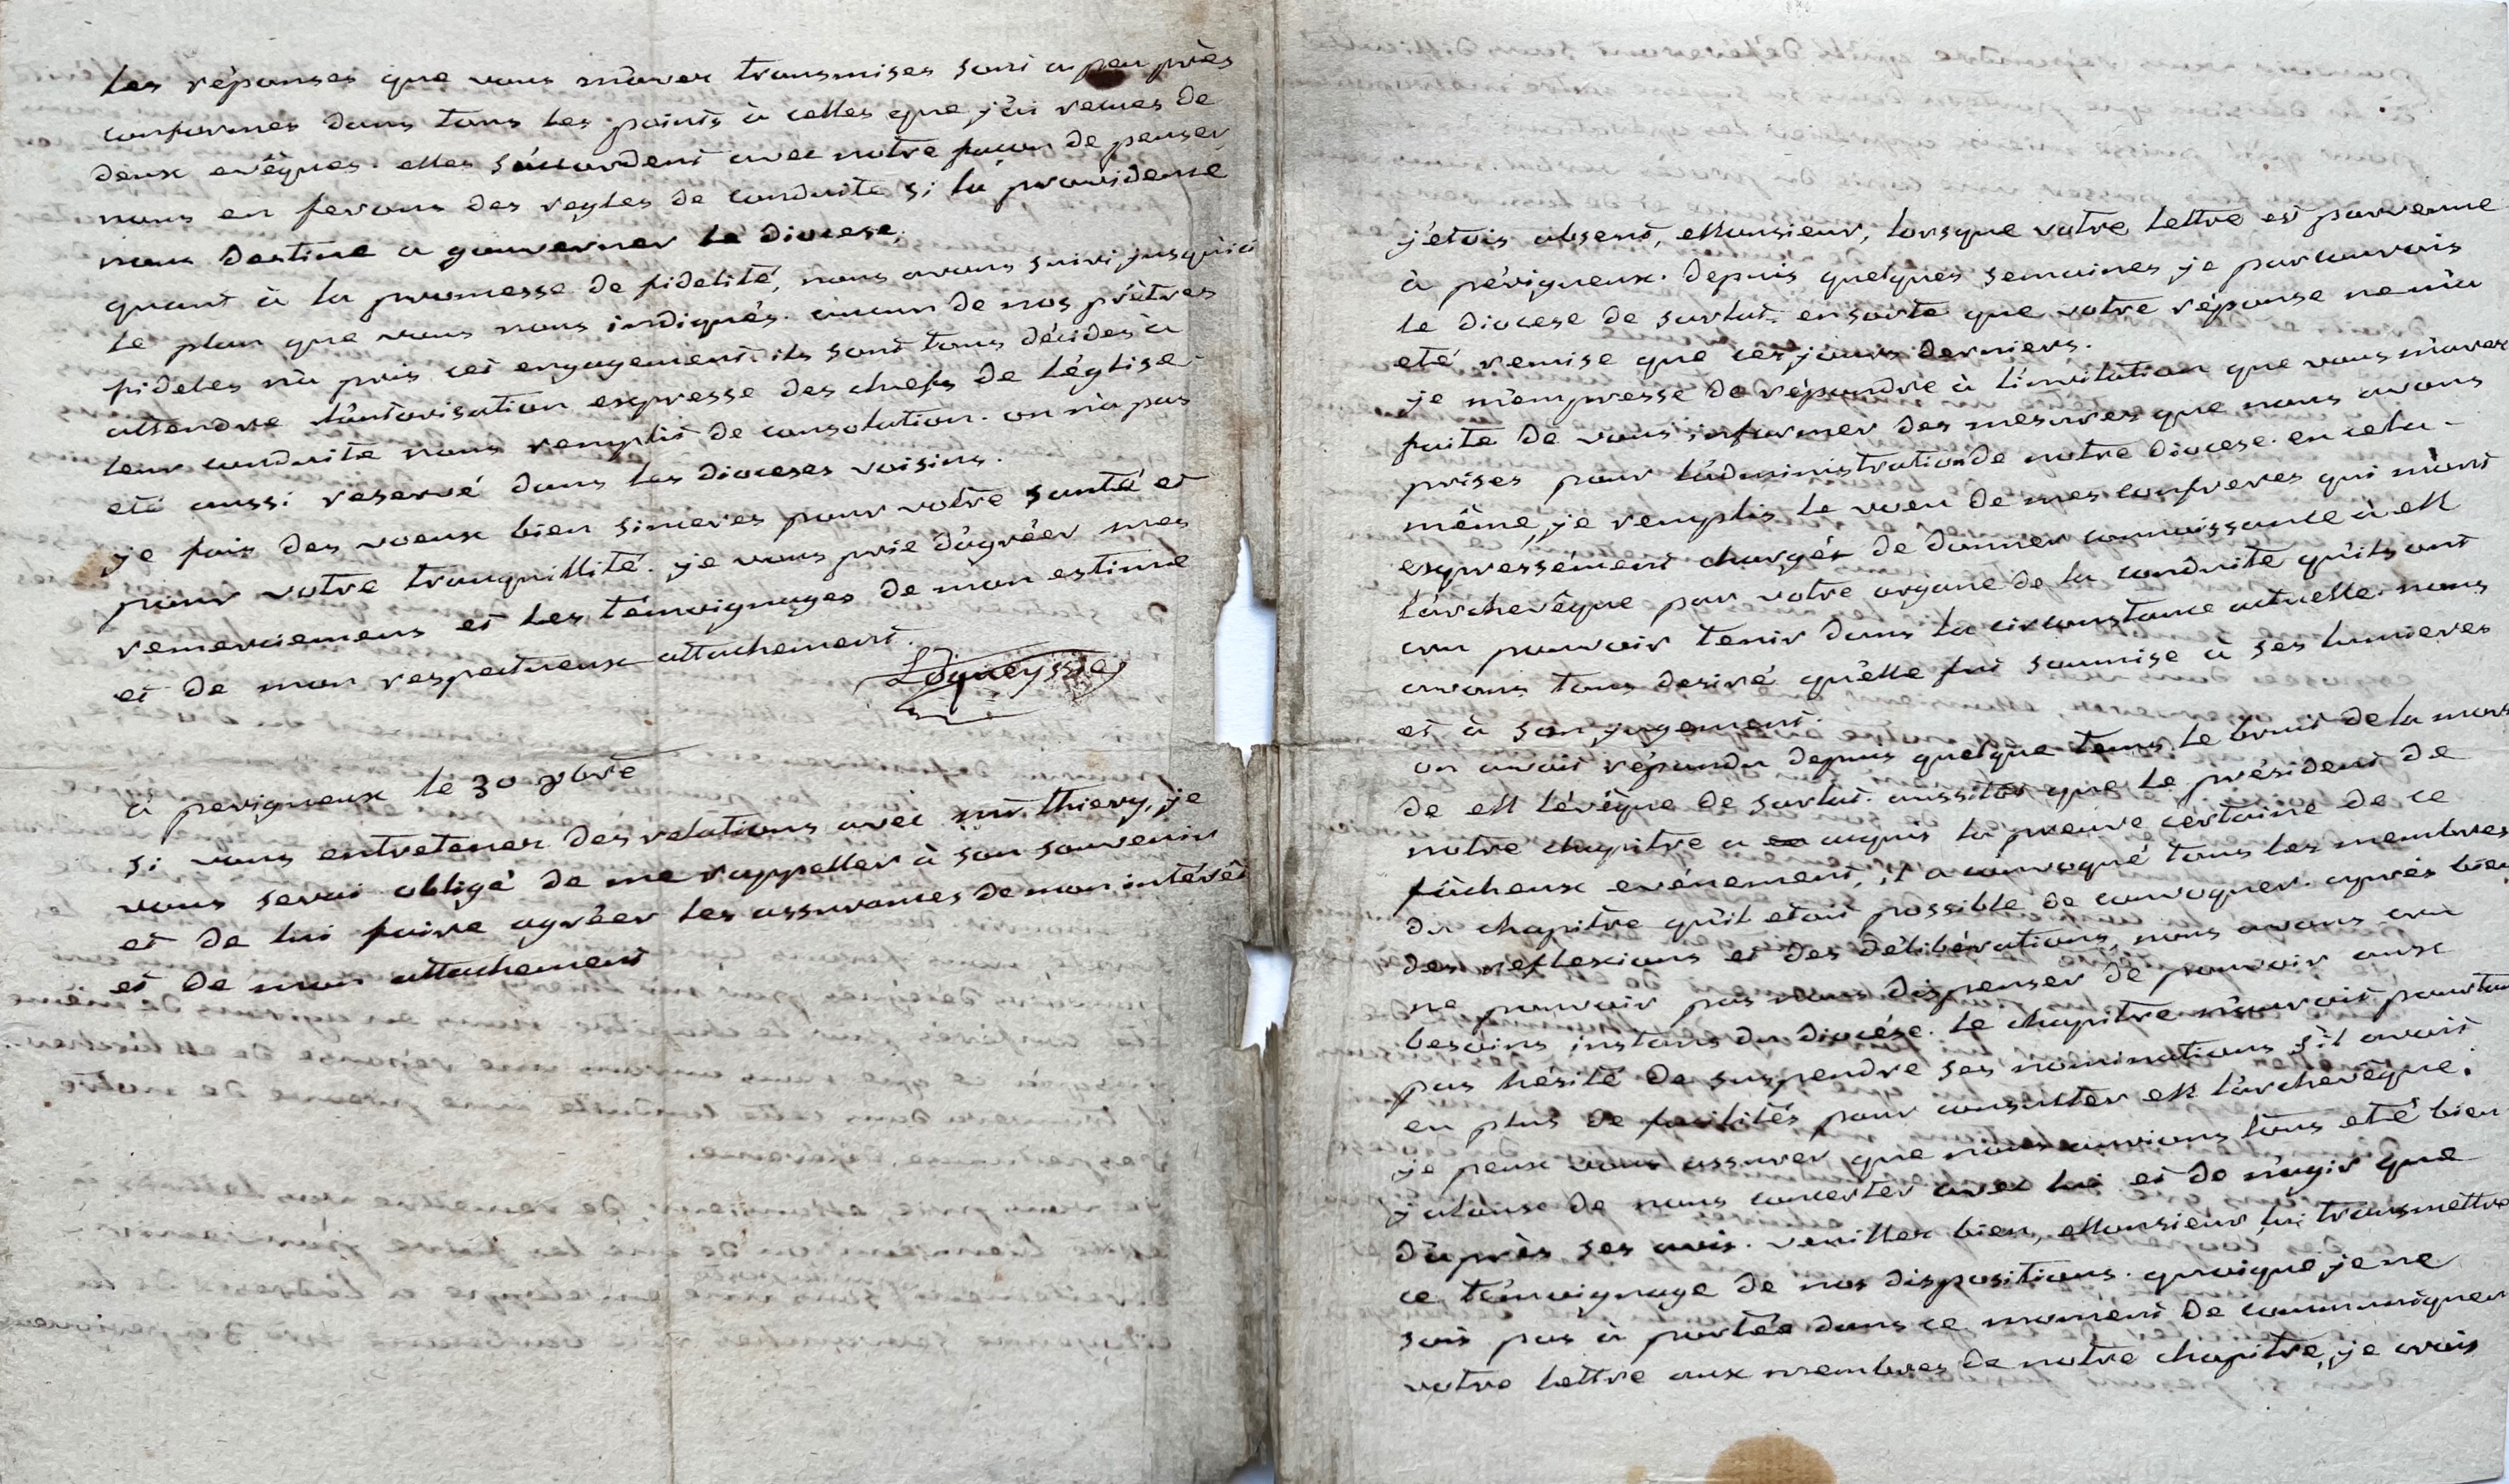 les réponses que vous m'avez transmises sont a peu près
conformes dans tous les points à celles que j'ai recues de
deux evêques. elles s'accordent avec notre façon de penser,
nous en ferons des regles de conduite si la providence
nous destine a gouverner le diocese.
quant à la promesse de fidelité, nous avons suivi jusqu'ici
le plan que vous nous indiqués. aucun de nos prètres
fideles n'a pris cet engagement. ils sont tous décidés à
attendre l'autorisation expresse des chefs de l'église.
leur conduite nous remplit de consolation. on n'a pas
eté aussi reservé dans les dioceses voisins.
je fais des voeux bien sinceres pour votre santé et
pour votre tranquillité. je vous prie d'agréer mes
remerciemens et les témoignages de mon estime
et de mon respectueux attachement.
Logueyssie
à perigueux le 30 9bre
si vous entretenez des relations avec mr thiery, je
vous serai obligé de me rappeller à son souvenir
et de lui faire agréer les assurances de mon intérêt
et de mon attachement
j'etois absent, Monsieur, lorsque votre lettre est parvenue
à périgueux. depuis quelques semaines je parcourois
le diocese de sarlat. ensorte que votre réponse ne m'a
eté remise que ces jours derniers.
je m'empresse de répondre à l'invitation que vous m'avez
faite de vous informer des mesures que nous avons
prises pour l'administration de notre diocese. en cela
même, je remplis le voeu de mes confreres qui m'ont
expressément chargés de donner connoissance à M
l'archevêque par votre organe de la conduite qu'ils ont
cru pouvoir tenir dans la circonstance actuelle. nous
avons tous desiré qu'elle fut soumise à ses lumieres
et à son jugement.
on avoit répandu depuis quelque tems le bruit de la mort
de M l'évêque de sarlat. aussitot que le président de
notre chapitre a acquis la preuve certaine de ce
fâcheux evénement, il a convoqué tous les membres
du chapitre qu'il etoit possible de convoquer. après bien
des reflexions et des délibérations, nous avons cru
ne pouvoir pas nous dispenser de pourvoir aux
besoins instans du diocése. le chapitre n'auroit pourtant
pas hésité de suspendre ses nominations s'il avoit
eu plus de facilités pour consulter M l'archevêque.
je peux vous assurer que nous aurions tous eté bien
jaloux de nous concerter avec lui et de n'agir que
d'après ses avis. veuillez bien, Monsieur, lui transmettre
ce témoignage de nos dispositions. quoique je ne
sois pas à portée dans ce moment de communiquer
votre lettre aux membres de notre chapitre, je crois